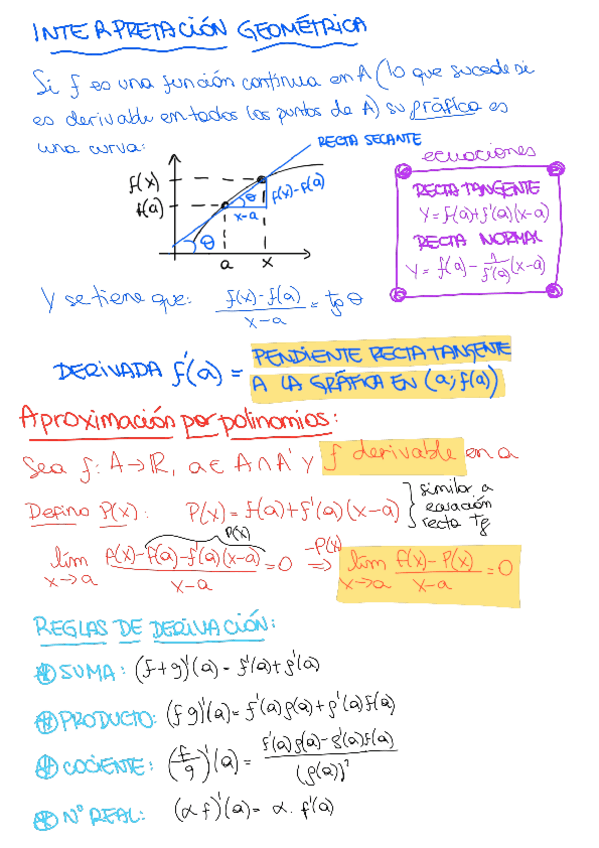 INTERPRETACIÓN GEOMÉTRICA
Si f es una función continua en A (lo que sucede si
es derivable en todos los puntos de A) su gráfica es
una curva:
RECTA SECANTE
f(x)
f(a)
θ
f(x)-f(a)
x-a
θ
a x
ecuaciones
RECTA TANGENTE
Y = f(a)+f'(a)(x-a)
RECTA NORMAL
Y = f(a) - 1/f'(a) (x-a)
Y se tiene que: f(x)-f(a)/x-a = tg θ
DERIVADA f'(a) = PENDIENTE RECTA TANGENTE
A LA GRÁFICA EN (a, f(a))
Aproximación por polinomios:
Sea f: A→ℝ, a ∈ A∩A' y f derivable en a
Defino P(x): P(x) = f(a)+f'(a)(x-a)
similar a
ecuación
recta tg
P(x)
lím x→a f(x)-f(a)-f'(a)(x-a)/x-a = 0 -P(x) ⇒ lím x→a f(x)-P(x)/x-a = 0
REGLAS DE DERIVACIÓN:
SUMA: (f+g)'(a) = f'(a)+g'(a)
PRODUCTO: (fg)'(a) = f'(a)g(a)+g'(a)f(a)
COCIENTE: (f/g)'(a) = f'(a)g(a)-g'(a)f(a)/(g(a))²
Nº REAL: (αf)'(a) = α. f'(a)